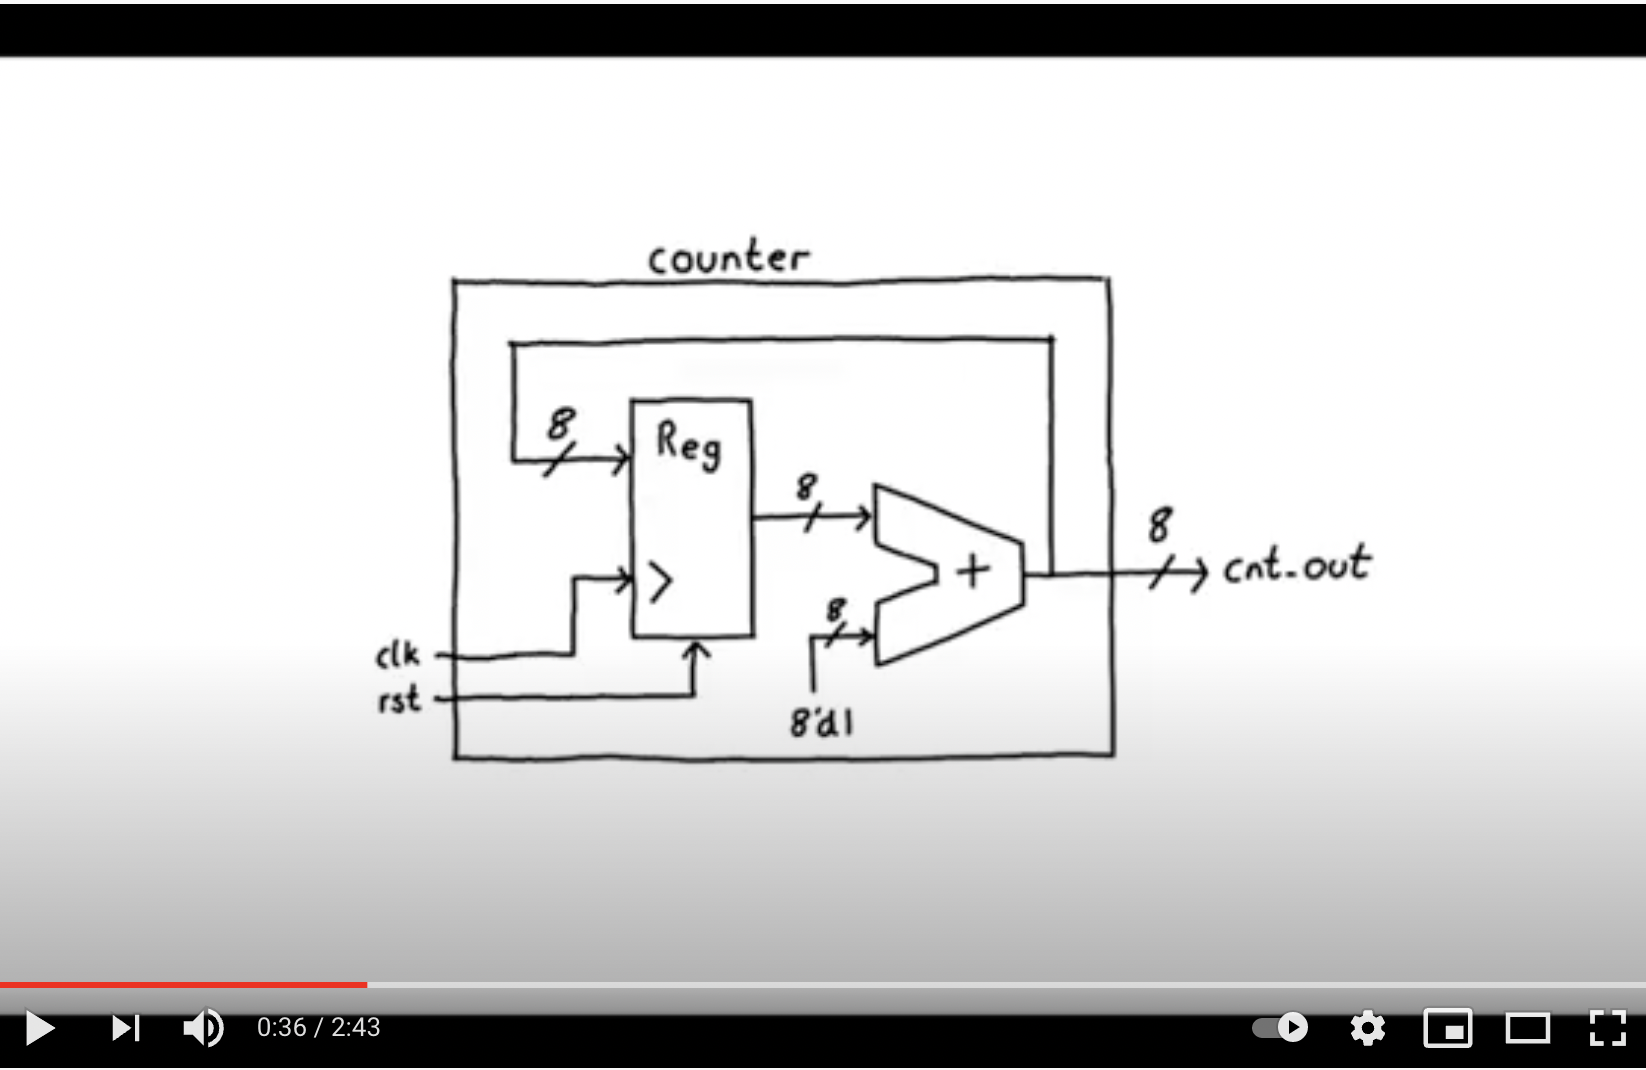 counter
8
Reg
8
8
cnt_out
+
8
clk
rst
8'd1
0:36 / 2:43